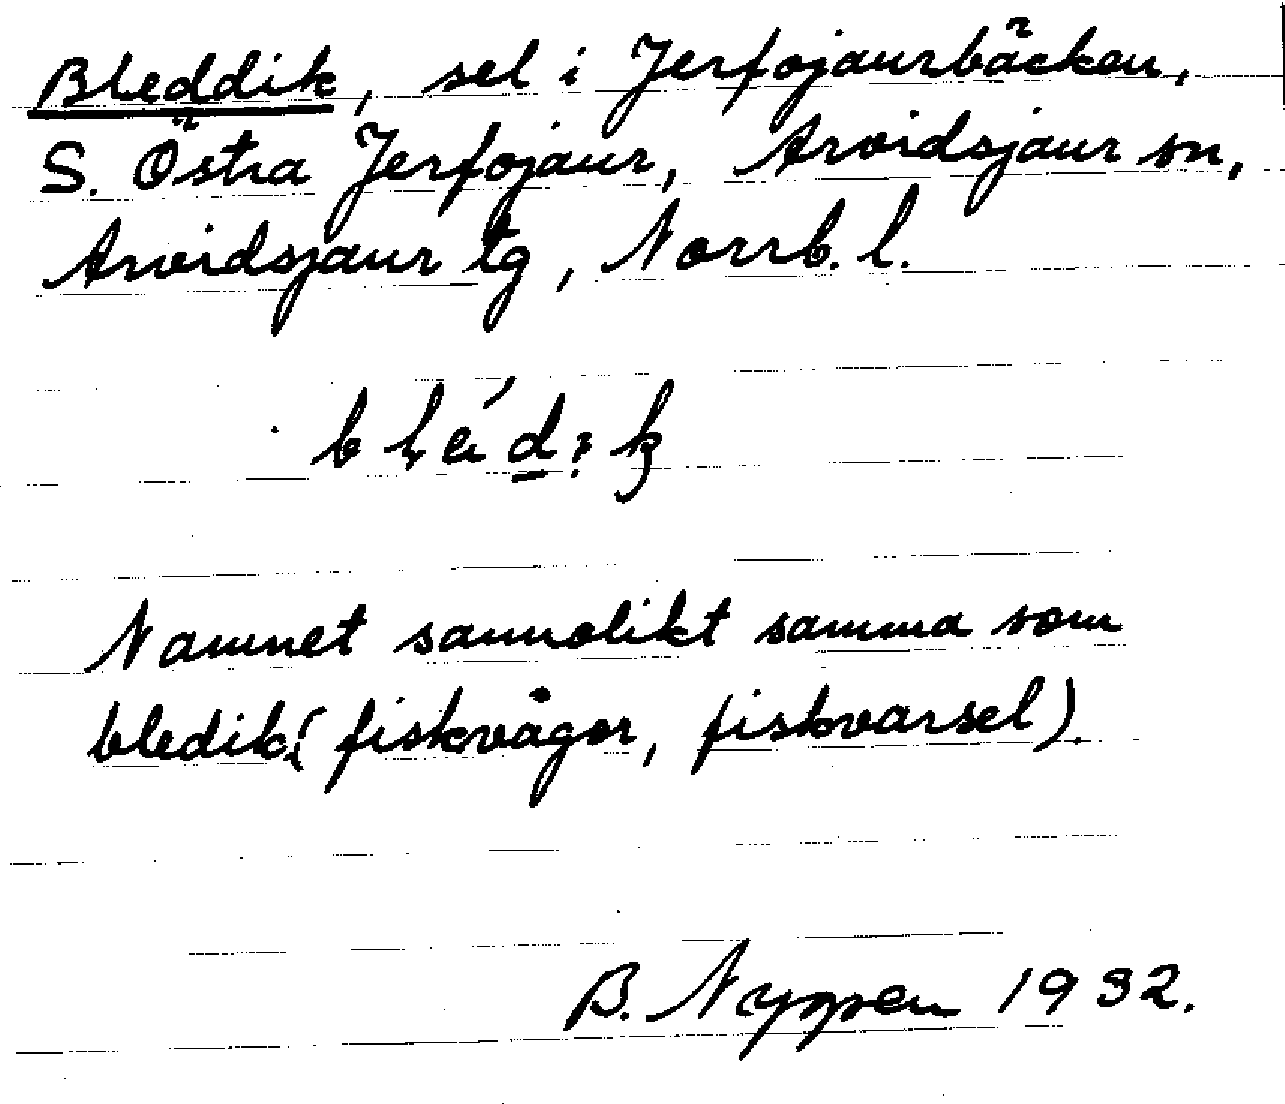 Bleddik, sel i Jerfojaurbäcken,
S. Östra Jerfojaur, Arvidsjaur sn,
Arvidsjaur tg, Norrb. l.
Namnet sannolikt samma som
bledik (fiskvågor, fiskvarsel).
B. Nyppen 1932.